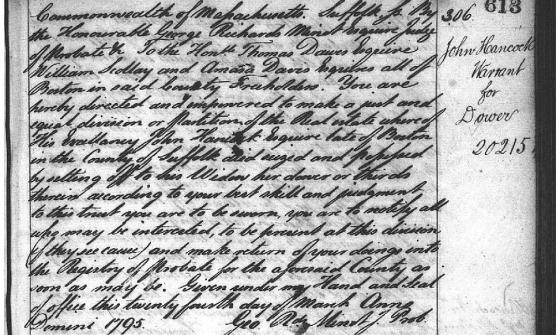 Commonwealth of Massachusetts. Suffolk Ss. By
the Honourable George Richards Minot Esquire Judge
of Probate &c To the Honble Thomas Dawes Esquire
William Scollay and Amasa Davis Esquires all of
Boston in said County Freeholders. You are
hereby directed and empowered to make a just and
equal division or partition of the Real estate whereof
His Excellency John Hancock Esquire late of Boston
in the County of Suffolk died seized and possessed
by setting off to his Widow her dower or thirds
therein according to your best skill and judgment
to this trust you are to be sworn, you are to notify all
who may be interested, to be present at this division
(if they see cause) and make return of your doings into
the Registry of Probate for the aforesaid County as
soon as may be. Given under my Hand and Seal
of office this twenty fourth day of March Anno
Domini 1795. Geo. Rds Minot J Prob.
306. 613
John Hancock
Warrant
for
Dower
20215